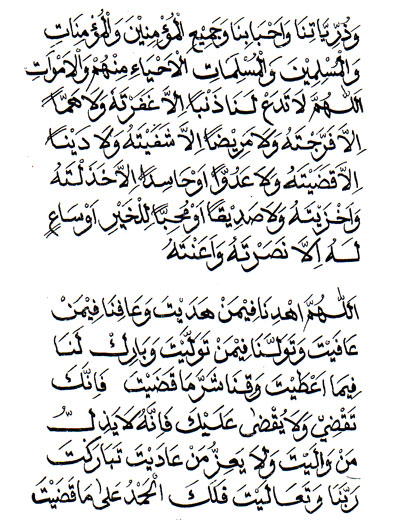 وَذُرِّيَّاتِنَا وَاَحْبَابِنَا وَجَمِيْعِ الْمُؤْمِنِيْنَ وَالْمُؤْمِنَاتِ
وَالْمُسْلِمِيْنَ وَالْمُسْلِمَاتِ الْاَحْيَاءِ مِنْهُمْ وَالْاَمْوَاتِ
اَللّٰهُمَّ لَا تَدَعْ لَنَا ذَنْبًا اِلَّا غَفَرْتَهُ وَلَا هَمًّا
اِلَّا فَرَّجْتَهُ وَلَا مَرِيْضًا اِلَّا شَفَيْتَهُ وَلَا دَيْنًا
اِلَّا قَضَيْتَهُ وَلَا عَدُوًّا اَوْحَاسِدًا اِلَّا خَذَلْتَهُ
وَاَخْزَيْتَهُ وَلَا صَدِيْقًا اَوْ مُحِبًّا لِلْخَيْرِ اَوْسَاعٍ
لَهُ اِلَّا نَصَرْتَهُ وَاَعَنْتَهُ
اَللّٰهُمَّ اهْدِنَا فِيْمَنْ هَدَيْتَ وَعَافِنَا فِيْمَنْ
عَافَيْتَ وَتَوَلَّنَا فِيْمَنْ تَوَلَّيْتَ وَبَارِكْ لَنَا
فِيْمَا اَعْطَيْتَ وَقِنَا شَرَّ مَا قَضَيْتَ فَاِنَّكَ
تَقْضِيْ وَلَا يُقْضٰى عَلَيْكَ فَاِنَّهُ لَا يَذِلُّ
مَنْ وَالَيْتَ وَلَا يَعِزُّ مَنْ عَادَيْتَ تَبَارَكْتَ
رَبَّنَا وَتَعَالَيْتَ فَلَكَ الْحَمْدُ عَلٰى مَا قَضَيْتَ